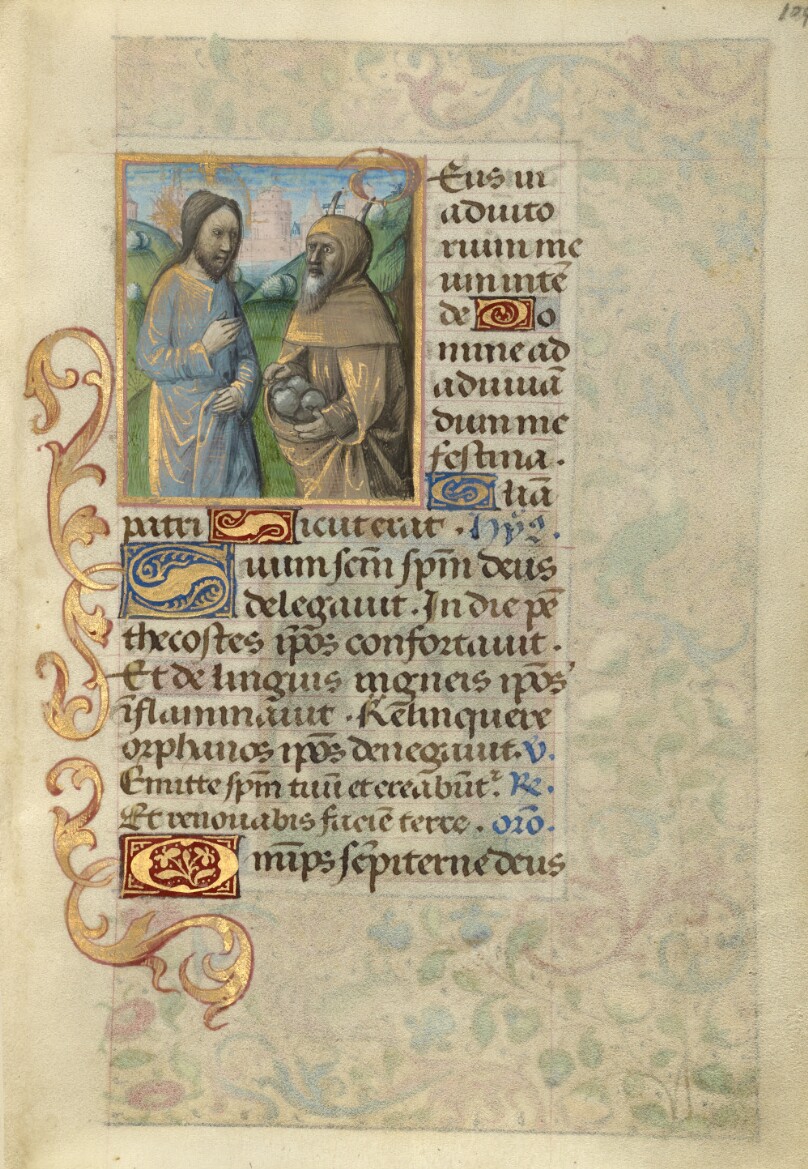 Eus in
adiuto
rium me
um intē
de Do
mine ad
adiuuā
dum me
festina.
Gliā
patri Sicut erat. hys.
Suum scm̄ spm̄ deus
delegauit. In die pē
thecostes ip̄os confortauit.
Et de linguis migneis ip̄os
īflammāuit. Relinquere
orphanos ip̄os denegauit. V.
Emitte spm̄ tuū et creābūt. Re.
Et renouabis faciē terre. orō.
Om̄ips sēpiterne deus